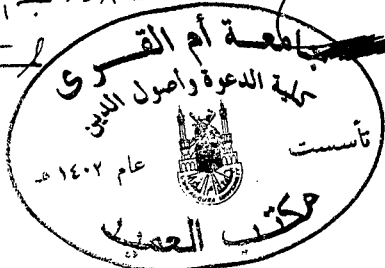 جامعة أم القرى
كلية الدعوة وأصول الدين
تأسست
عام ١٤٠٢ هـ
مكتب العميد